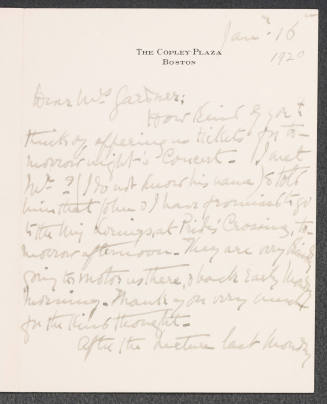 Jan. 16
1920
THE COPLEY PLAZA
BOSTON
Dear Mrs. Gardner:
How kind of you to
think of offering us tickets for to-
morrow night's Concert. I met
Mr. ? (I do not know his name) & told
him that John & I have promised to go
to the at Prides Crossing, to-
morrow afternoon. They are very kindly
going to motor us there, & back early Monday
morning. Thank you very much
for the kind thought.
After the lecture last Monday